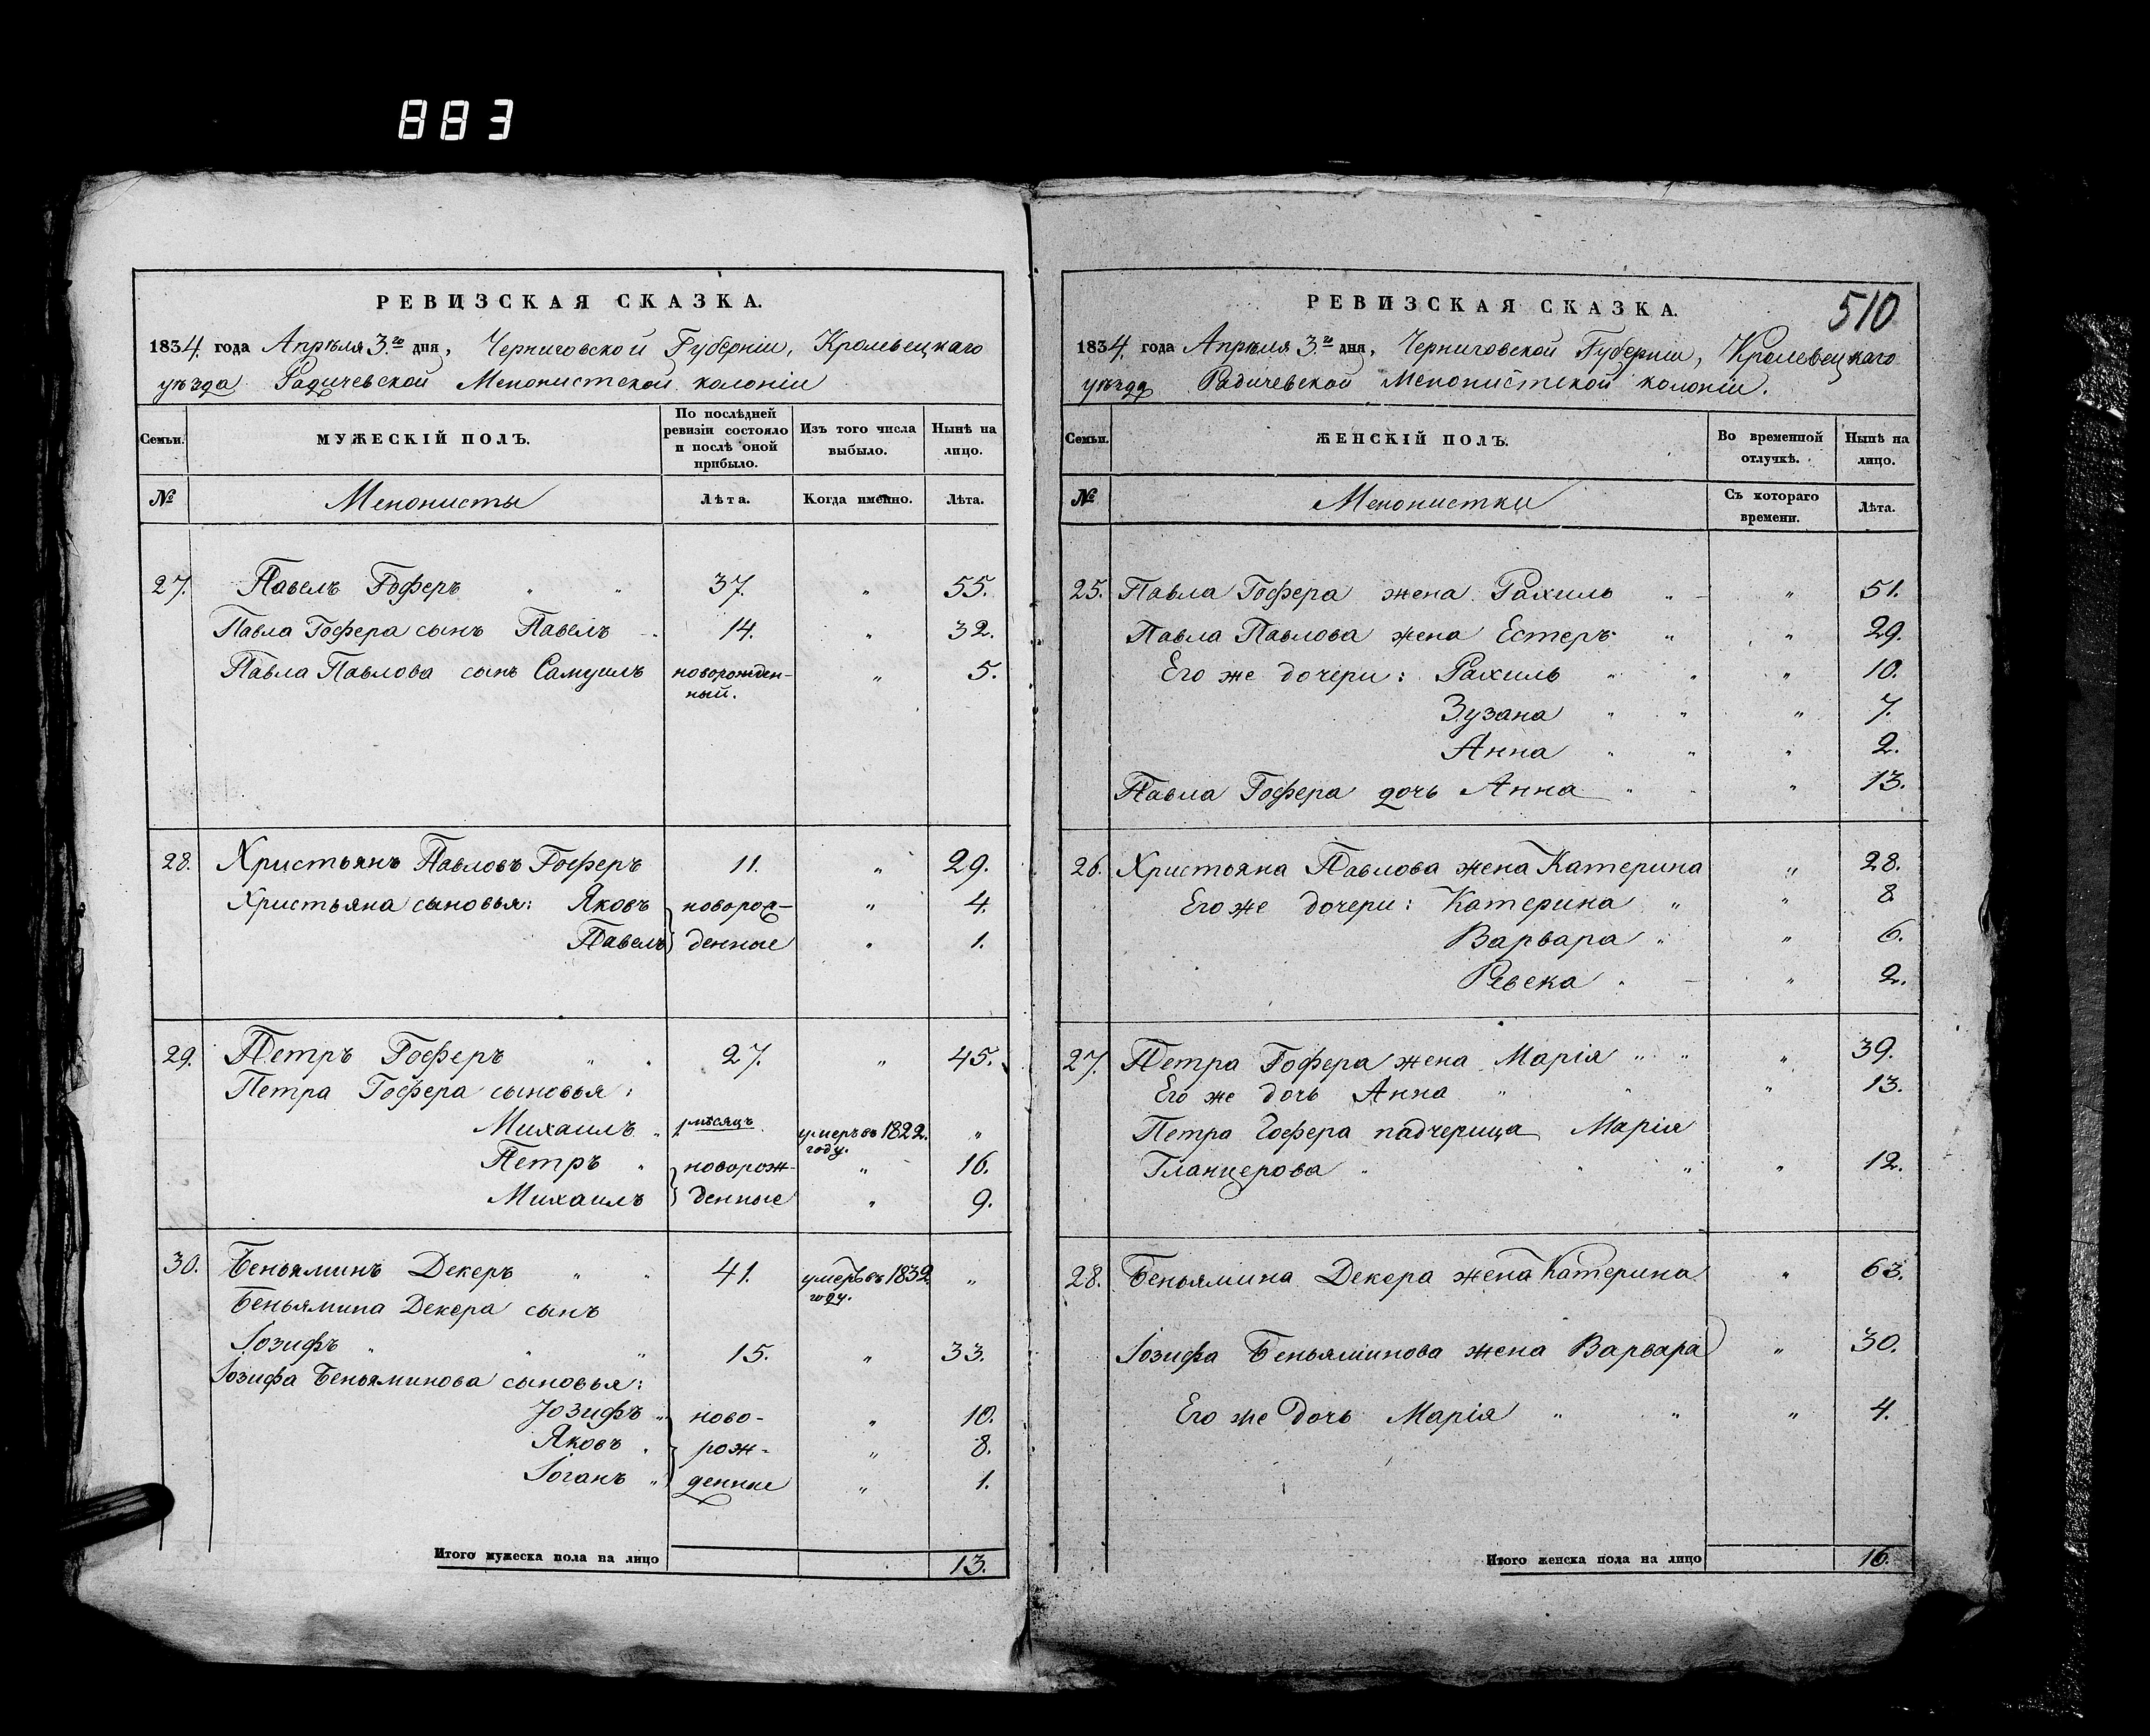 883
РЕВИЗСКАЯ СКАЗКА.
1834. года Апрѣля 3.го дня, Черниговской Губерніи, Кролевецкаго
уѣзда Радичевской Менонистской колоніи
Семьи.
МУЖЕСКІЙ ПОЛЪ.
По послѣдней
ревизіи состояло
и послѣ оной
прибыло.
Изъ того числа
выбыло.
Нынѣ на
лицо.
№ Менонисты Лѣта. Когда имѣнно. Лѣта.
27. Павелъ Гоферъ " " 37. " 55.
Павла Гофера сынъ Павелъ 14. " 32.
Павла Павлова сынъ Самуилъ новорожден- " 5.
ный.
28. Христьянъ Павловъ Гоферъ 11. " 29.
Христьяна сыновья: Яковъ новорож- " 4.
Павелъ денные " 1.
29. Петръ Гоферъ " " 27. " 45.
Петра Гофера сыновья:
Михаилъ " 1 мѣсяцъ умеръ въ 1822. "
году.
Петръ " новорож- " 16.
Михаилъ денные " 9.
30. Беньяминъ Декеръ " " 41. умеръ въ 1832 "
году.
Беньямина Декера сынъ
Іозифъ " " " 15. " 33.
Іозифа Беньяминова сыновья:
Іозифъ " ново- " 10.
Яковъ " рож- " 8.
Іоганъ " денные " 1.
Итого мужеска пола на лицо 13.
510
РЕВИЗСКАЯ СКАЗКА.
1834. года Апрѣля 3.го дня, Черниговской Губерніи, Кролевецкаго
уѣзда Радичевской Менонистской колоніи.
Семьи.
ЖЕНСКІЙ ПОЛЪ.
Во временной
отлучкѣ.
Нынѣ на
лицо.
№ Менонистки
Съ котораго
времени.
Лѣта.
25. Павла Гофера жена Рахиль " " 51.
Павла Павлова жена Естеръ " " 29.
Его же дочери: Рахиль " " " 10.
Зузана " " " 7.
Анна " " " 2.
Павла Гофера дочь Анна " " " 13.
26. Христьяна Павлова жена Катерина " 28.
Его же дочери: Катерина " " 8.
Варвара " " 6.
Ревека " " 2.
27. Петра Гофера жена Марія " " " 39.
Его же дочь Анна " " " 13.
Петра Гофера падчерица Марія
Гланцерова " " " " 12.
28. Беньямина Декера жена Катерина " 63.
Іозифа Беньяминова жена Варвара " 30.
Его же дочь Марія " " " 4.
Итого женска пола на лицо 16.